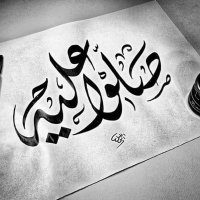 صلوا عليه